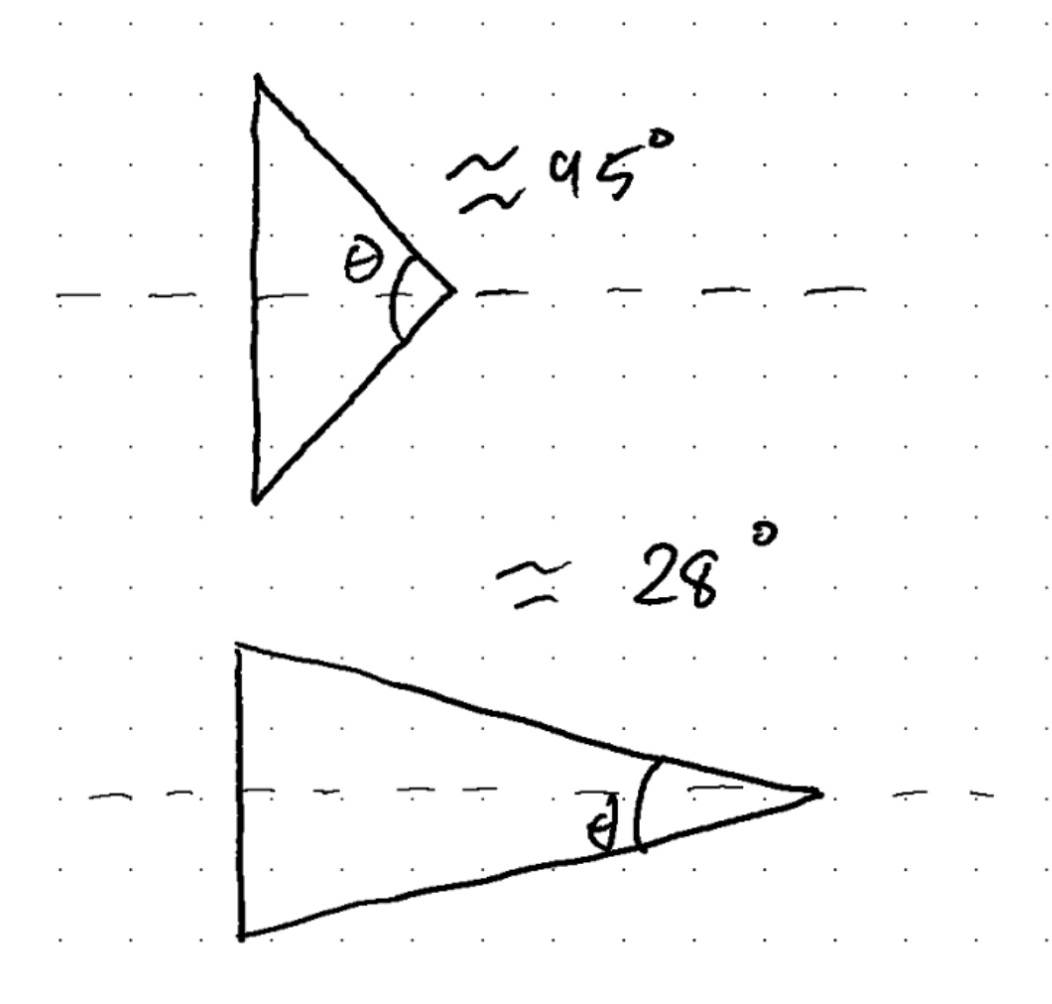 ≈ 95°
θ
≈ 28°
θ